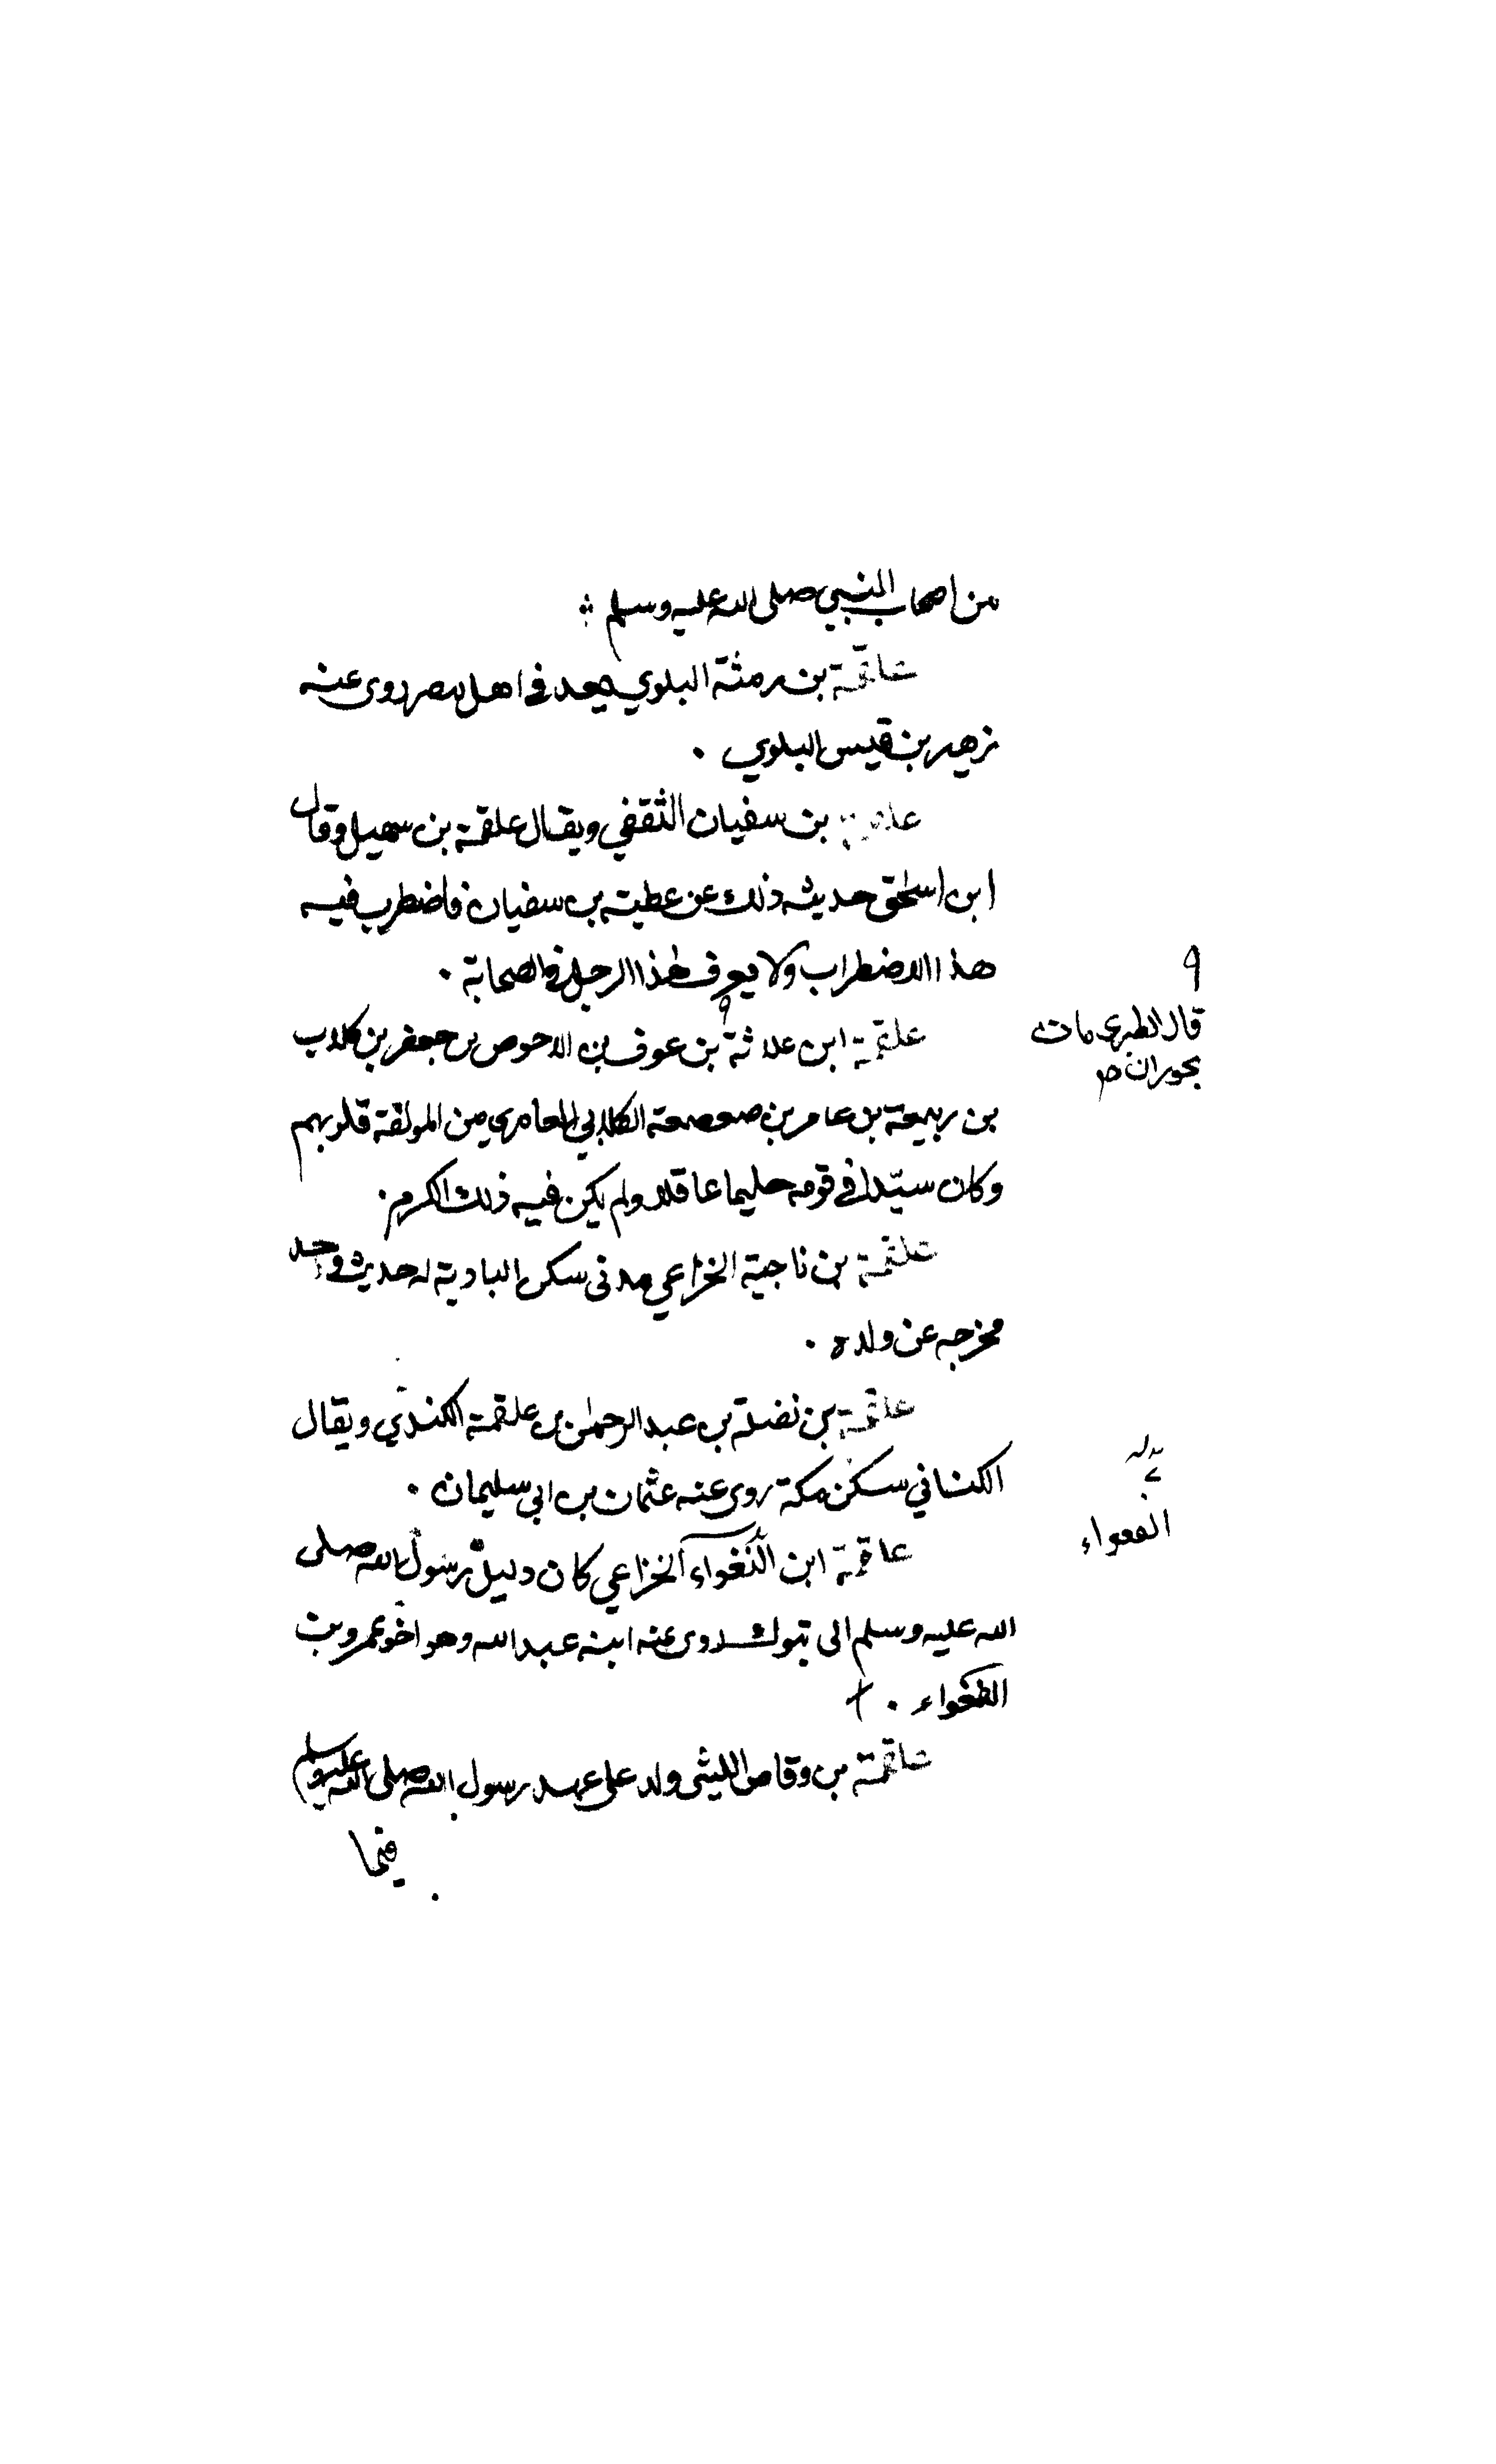 من اصحاب النبي صلى الله عليه وسلم
علقمة بن رمثة البلوي يعد في اهل مصر روى عنه
زهير بن قيس البلوي .
علقمة بن سفيان الثقفي ويقال علقمة بن سهيل وقال
ابن اسحق حديثه ذلك عن عطية بن سفيان فاضطرب فيه
هذا الاضطراب ولا يعرف هذا الرجل في الصحابة .
علقمة ابن علاثة بن عوف بن الاحوص بن جعفر بن كلاب
قال الطبري مات
بحوران
بن ربيعة بن عامر بن صعصعة الكلابي العامري من المولفة قلوبهم
وكان سيّدا في قومه حليما عاقلا ولم يكن فيه ذلك الكرم .
علقمة بن ناجية الخزاعي مدني سكن البادية له حديث واحد
مخرجه عن ولده .
علقمة بن نضلة بن عبد الرحمن بن علقمة الكندي ويقال
الكناني سكن مكة روى عنه عثمان بن ابي سليمان .
علقمة ابن الفغواء الخزاعي كان دليل رسول الله صلى
الفغواء
الله عليه وسلم الى تبوك روى عنه ابنه عبد الله وهو اخو عمرو بن
الفغواء .
علقمة بن وقاص الليثي ولد على عهد رسول الله صلى الله عليه وسلم
فيما